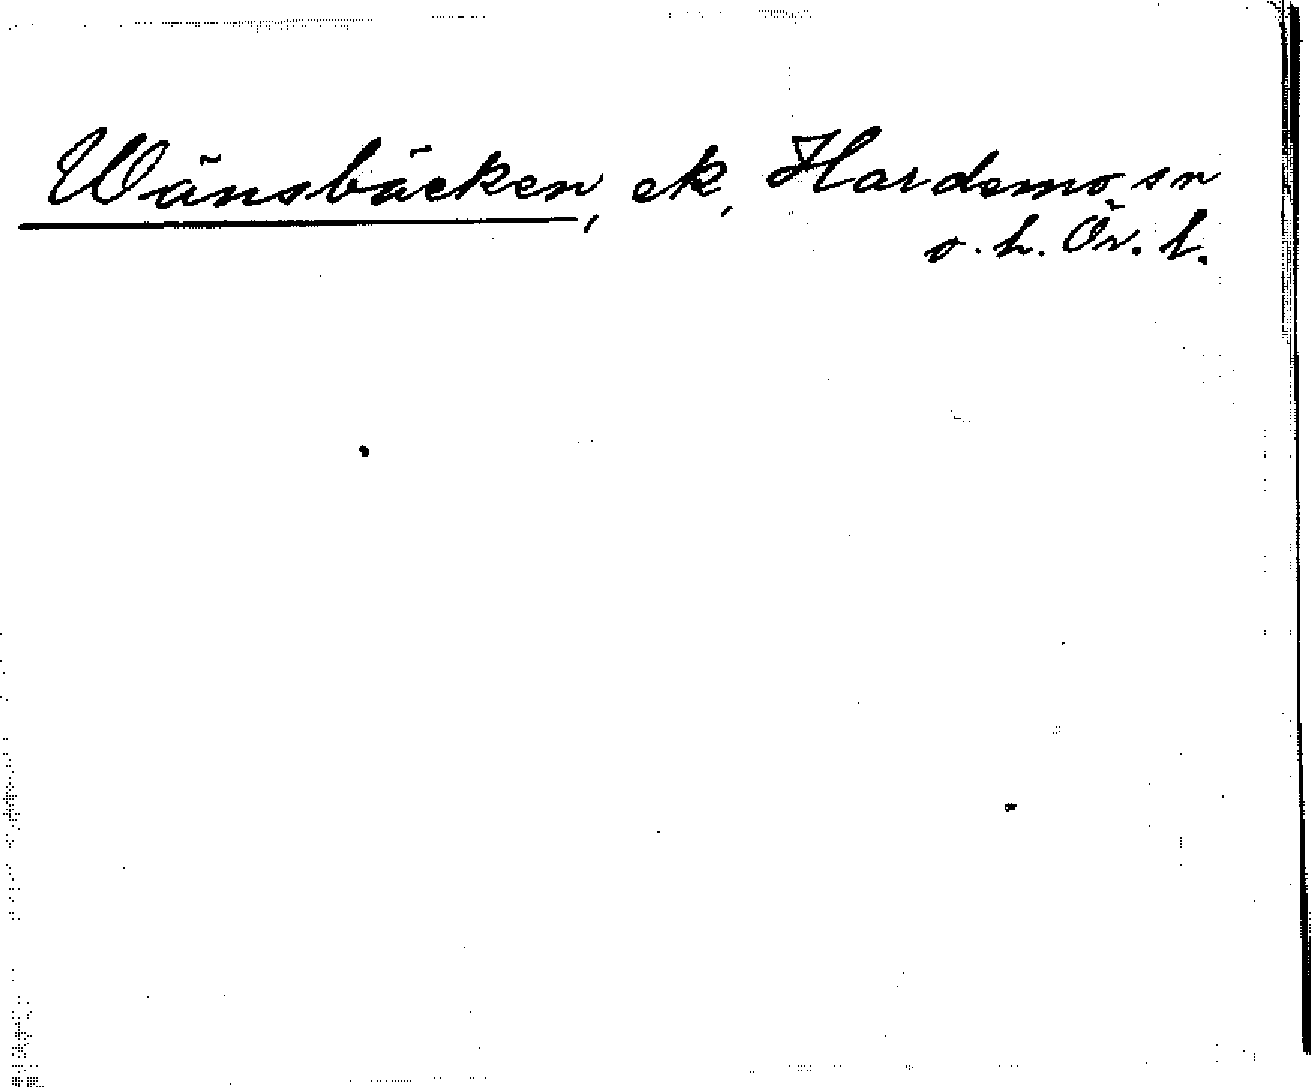 Wänsbäcken, ek, Hardemo sn
o. h. Ör. l.